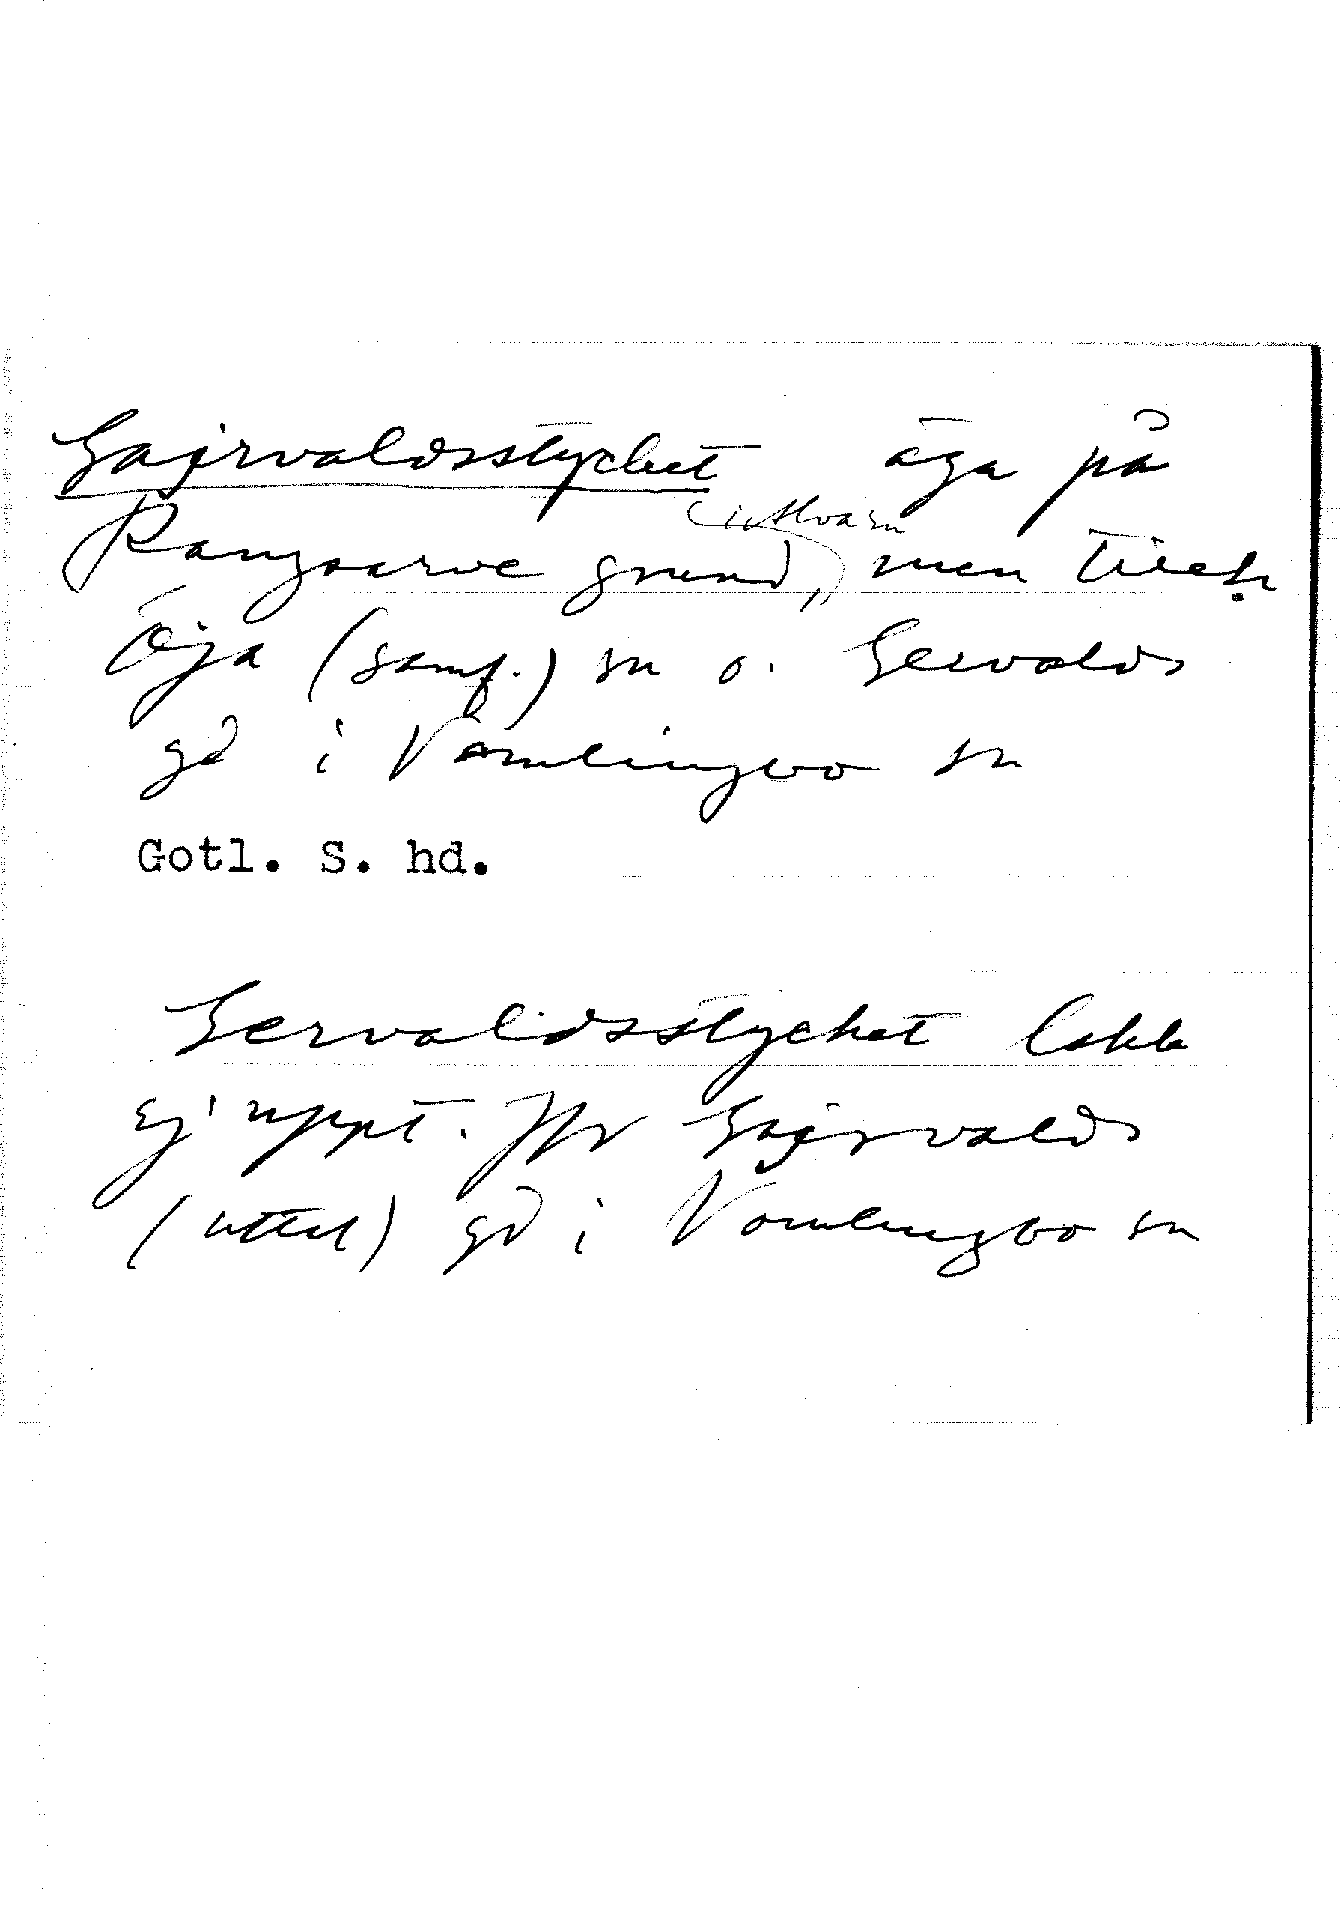 Gajrvaldsstycket äga på
(i Alvarn)
Rangsarve grund, men tillh.
Öja (samf.) sn o. Gervalds
gd i Vamlingbo sn
Gotl. S. hd.
Gervaldsstycket lokk
ej uppt. Jfr Gajrvalds
(uttal) gd i Vamlingbo sn